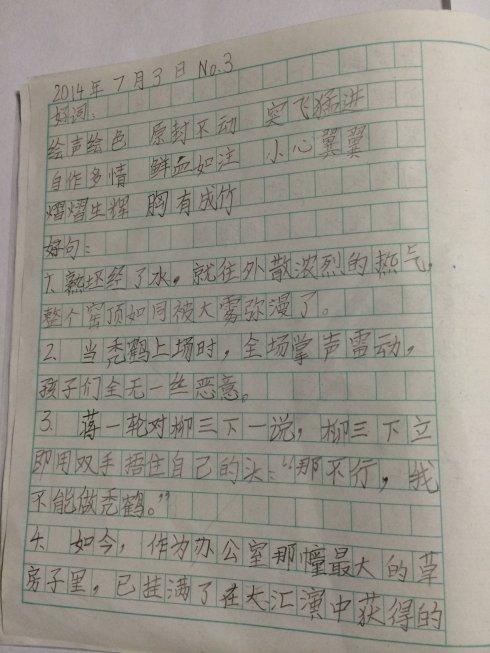 2014年7月3日 No.3
好词:
绘声绘色 原封不动 突飞猛进
自作多情 鲜血如注 小心翼翼
熠熠生辉 胸有成竹
好句:
1. 熟坯经了水，就往外散浓烈的热气，
整个窑顶如同被大雾弥漫了。
2. 当秃鹤上场时，全场掌声雷动，
孩子们全无一丝恶意。
3. 蒋一轮对柳三下一说，柳三下立
即用双手捂住自己的头：“那不行，我
不能做秃鹤。”
4. 如今，作为办公室那幢最大的草
房子里，已挂满了在大汇演中获得的